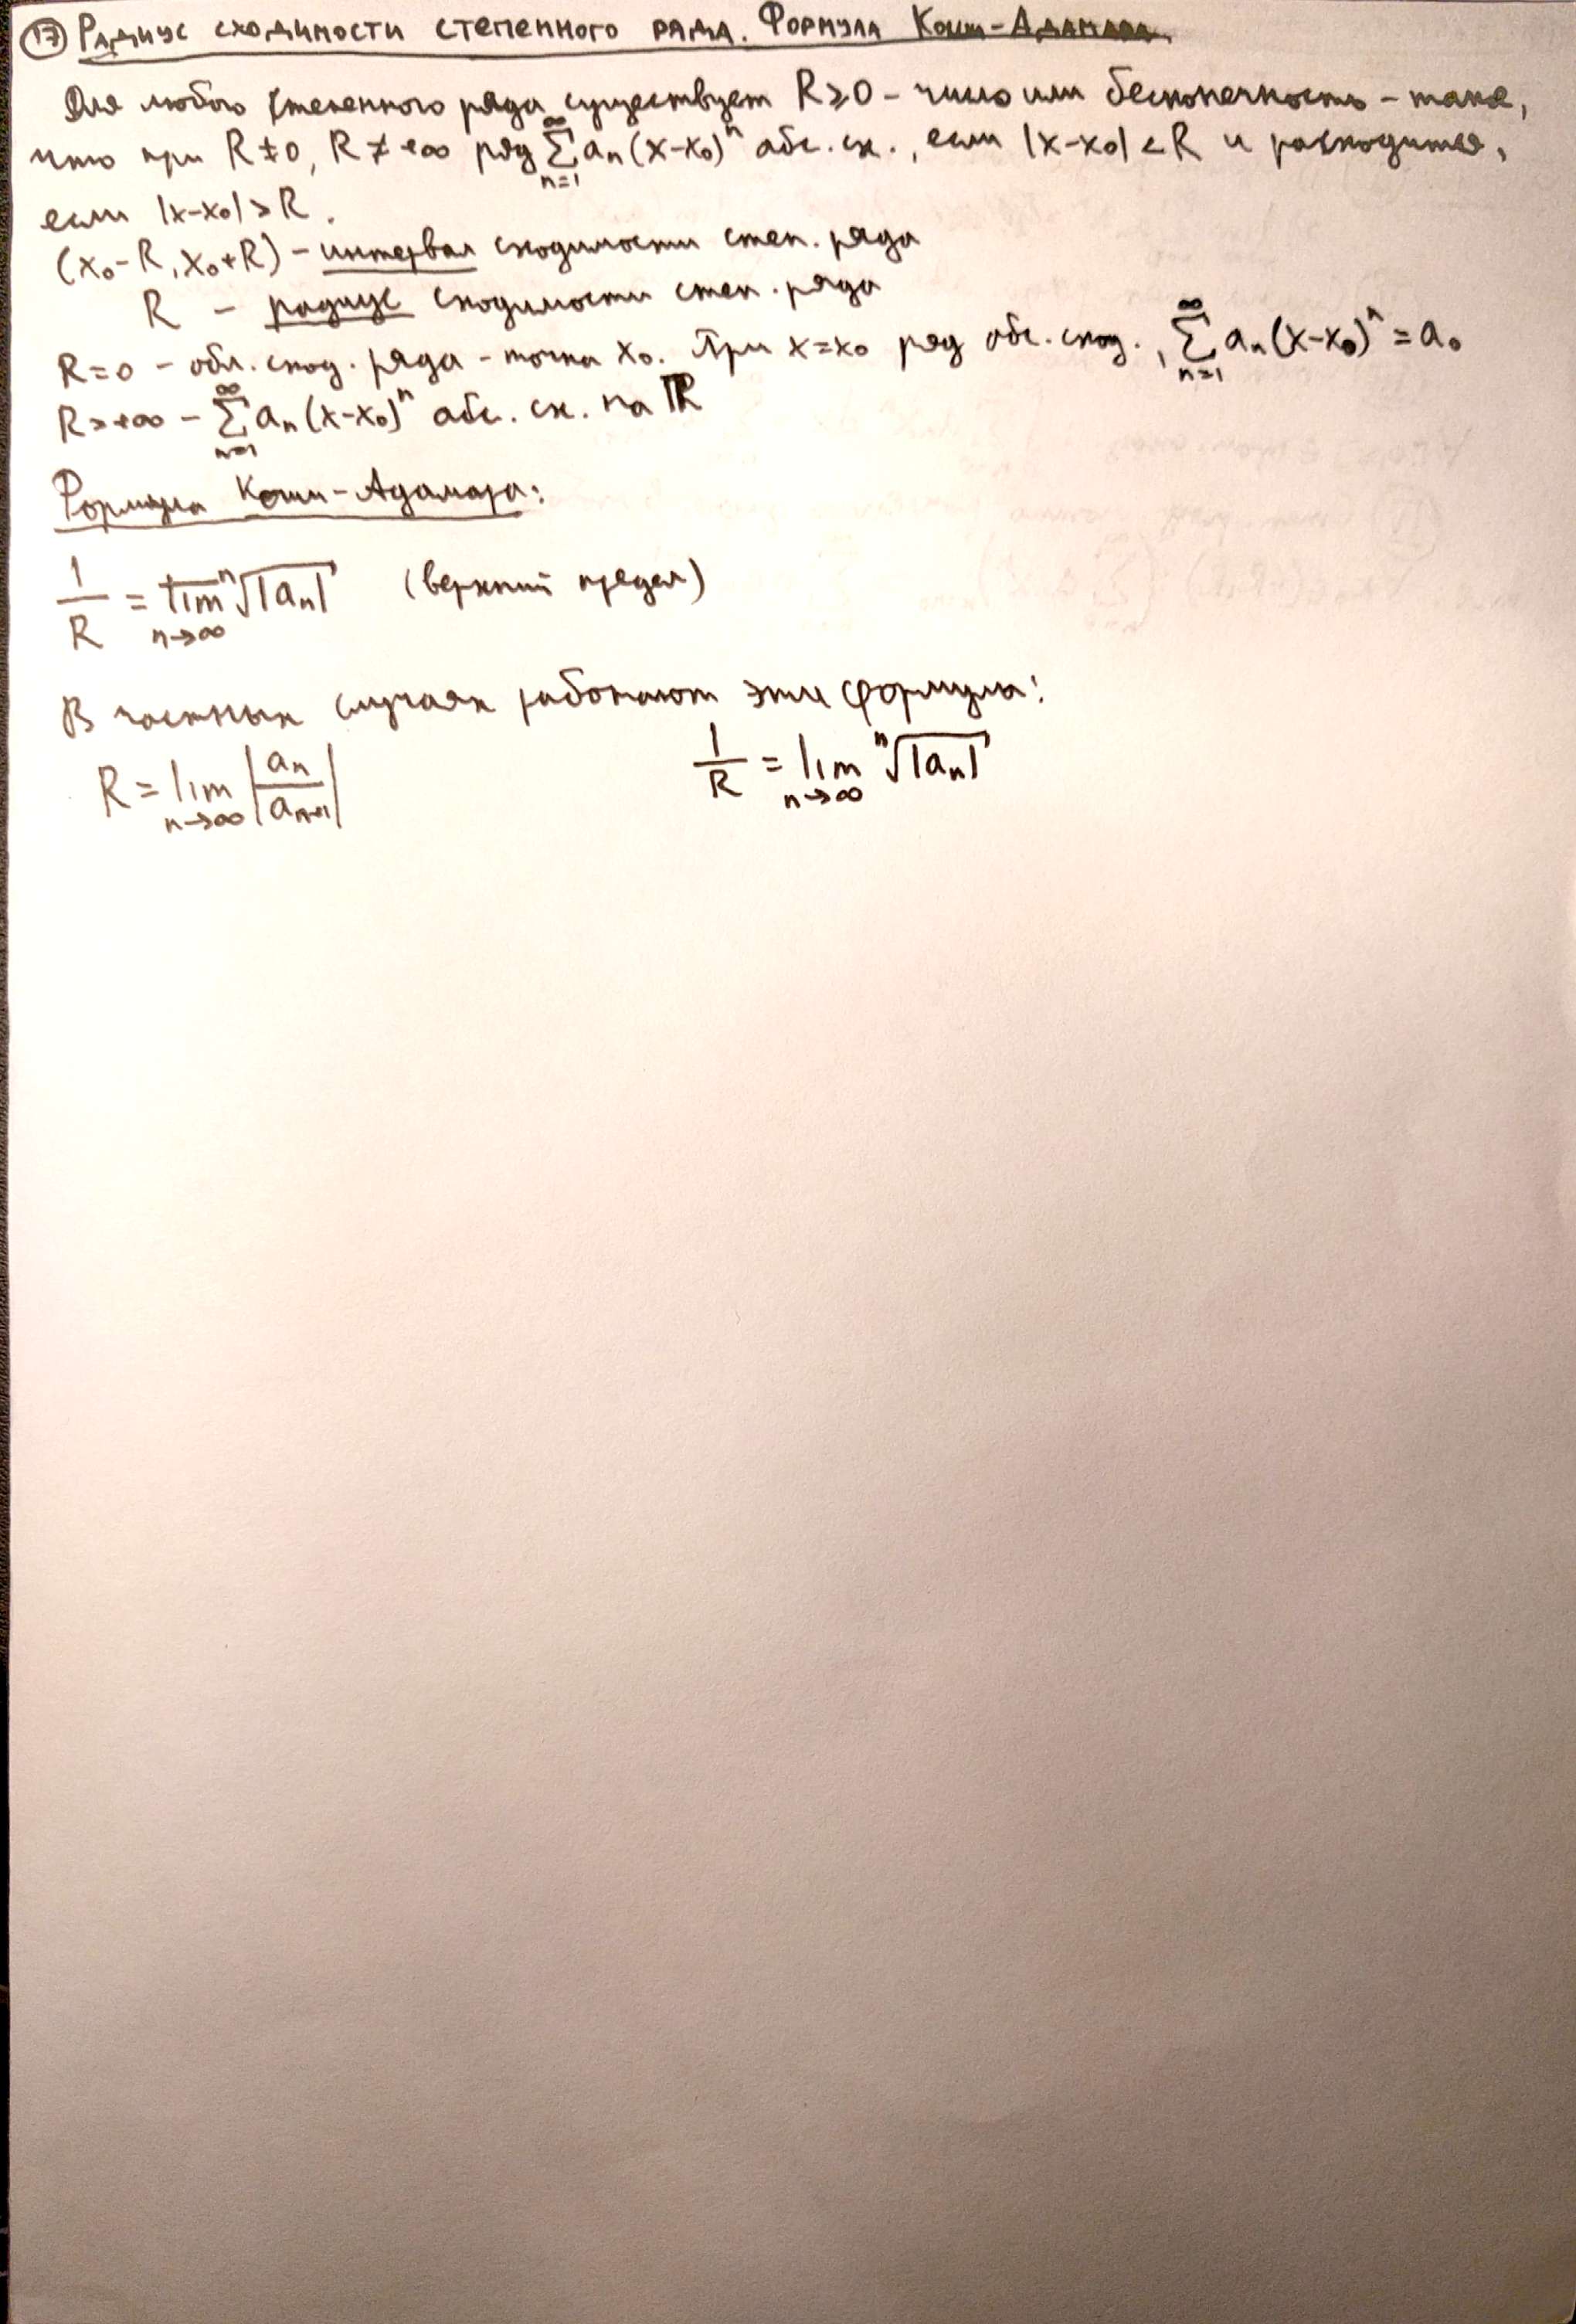 ⑰ Радиус сходимости степенного ряда. Формула Коши-Адамара
Для любого степенного ряда существует R≥0 – число или бесконечность – такое,
что при R≠0, R≠+∞ ряд ∑_{n=1}^{∞} aₙ(x-x₀)ⁿ абс. сх., если |x-x₀|<R и расходится,
если |x-x₀|>R.
(x₀-R, x₀+R) – интервал сходимости степ. ряда
R – радиус сходимости степ. ряда
R=0 – обл. сход. ряда – точка x₀. При x=x₀ ряд абс. сход., ∑_{n=1}^{∞} aₙ(x-x₀)ⁿ = a₀
R=+∞ – ∑_{n=1}^{∞} aₙ(x-x₀)ⁿ абс. сх. на ℝ
Формула Коши-Адамара:
1/R = \overline{lim}_{n→∞} ⁿ√|aₙ| (верхний предел)
В частных случаях работают эти формулы:
R = lim_{n→∞} |aₙ/aₙ₊₁| 1/R = lim_{n→∞} ⁿ√|aₙ|